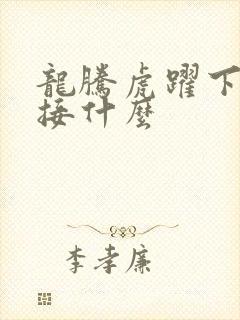 龍騰虎躍下
接什麼
李孝廉